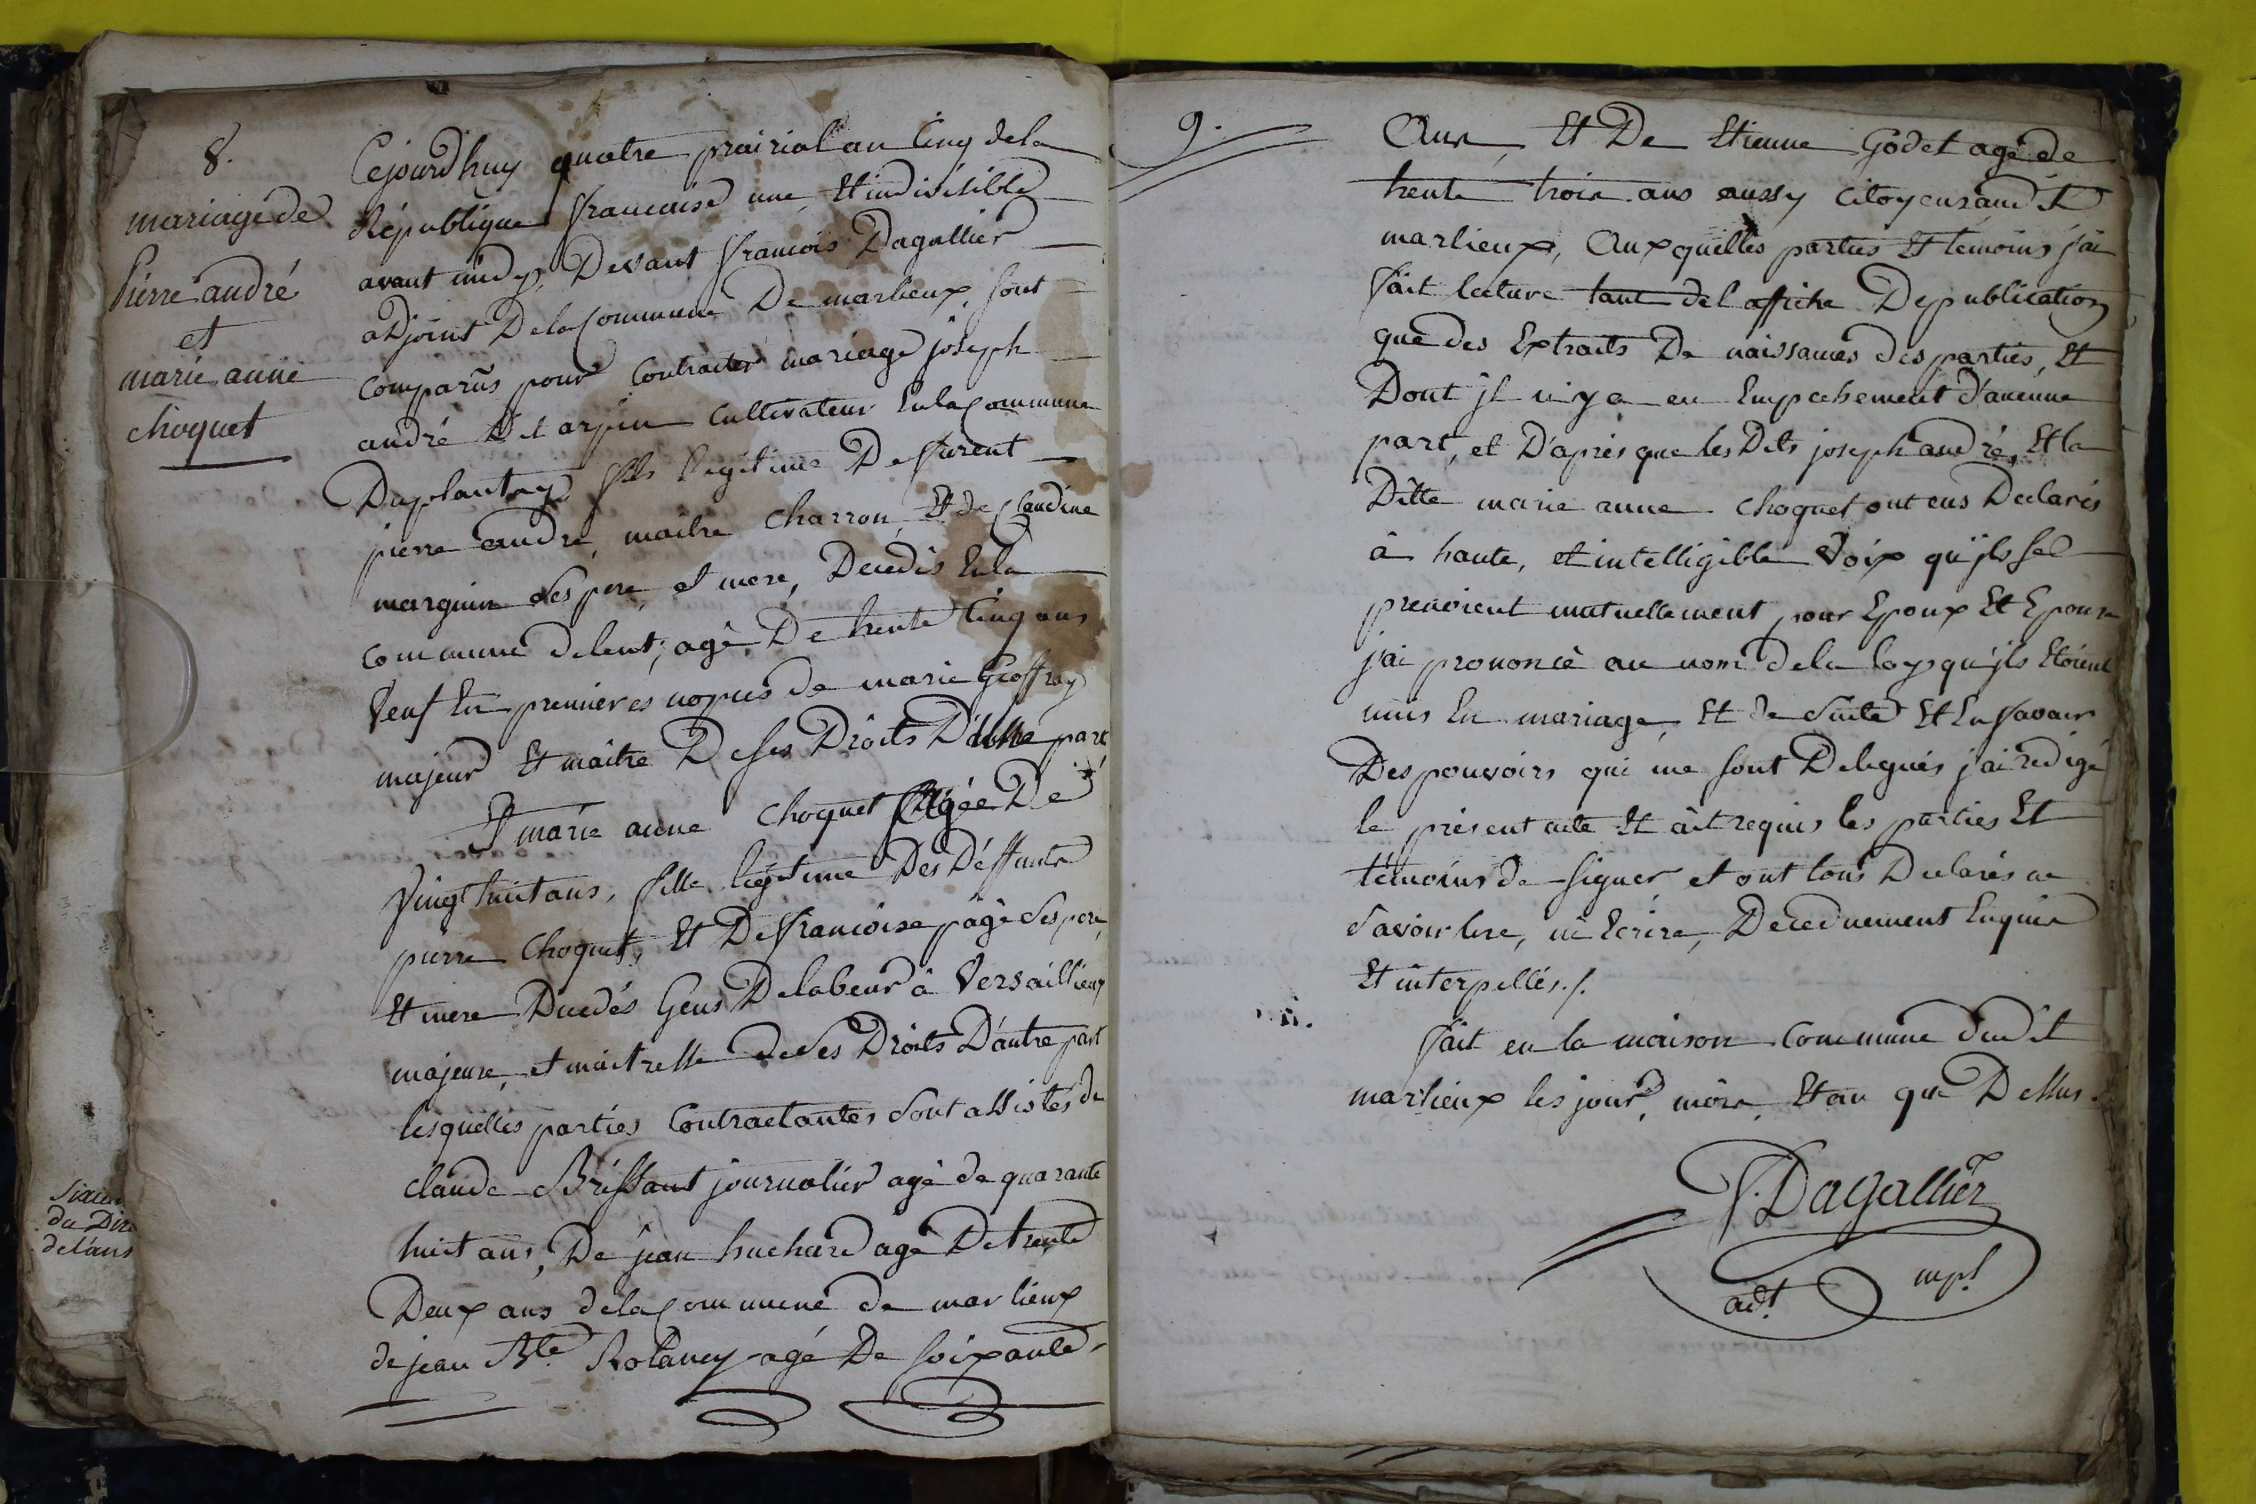 8.
mariage de
Pierre andré
et
marie anne
choquet
Cejourdhuy quatre prairial an Cinq dela
République francaise une, Et indivisible
avant midy, Devant francois Dagallier
adjoint Delacommune De marlieux, sont
comparûs pour Contracter mariage joseph
andré Det arpin Cultivateur Enlacommune
Duplantay, fils legitime De furent
pierre andré, maitre Charron, Et de Claudine
marguin ses pere, et mere, Decedés Enla
commune delent; agé De trente Cinq ans
Veuf En premieres nopces de marie Geoffray
majeur Et maitre De ses Droits D'une part
Et marie anne Choquet Agée De
Vingt huit ans, fille légitime Des Deffunts
pierre Choquet, Et De francoise page ses pere,
Et mere Decedés Gens Delabeur à Versaillieux
majeure, et maitresse de ses Droits D'autre part
lesquelles parties Contractantes sont assistés de
claude Brissant journalier agé de quarante
huit ans, De jean huchard agé De trente
Deux ans delacommune de marlieux
de jean Bte. Rolancy agé De soixante
Sixiem
du Dire
delans
9.
Ans, Et De Etienne Godet agé de
trente trois ans aussy citoyens audit
marlieux, Auxquelles parties Et temoins j'ai
fait lecture tant del affiche De publication
que des Extraits De naissances des parties, Et
Dont jl n'y a eu Empechement d'aucune
part, et D'après que les Dits joseph andré, Et la
Ditte marie anne Choquet ont eus Declarés
à haute, et intelligible Voix qu'jls se
prenoient mutuellement pour Epoux Et Epouse
j'ai prononcé au nom dela loy qu'jls Etoient
unis En mariage, Et de suite Et En favair
Des pouvoirs qui me sont Delegués j'ai redigé
le present acte Et ait requis les parties Et
témoins de signer et ont tous Declarés ne
savoir lire, ni Ecrire, De ce duement Enquis
Et interpellés ./.
fait en la maison Commune dudit
marlieux les jour, mois, Et an que Dessus.
f. Dagallier
adt. mpl.